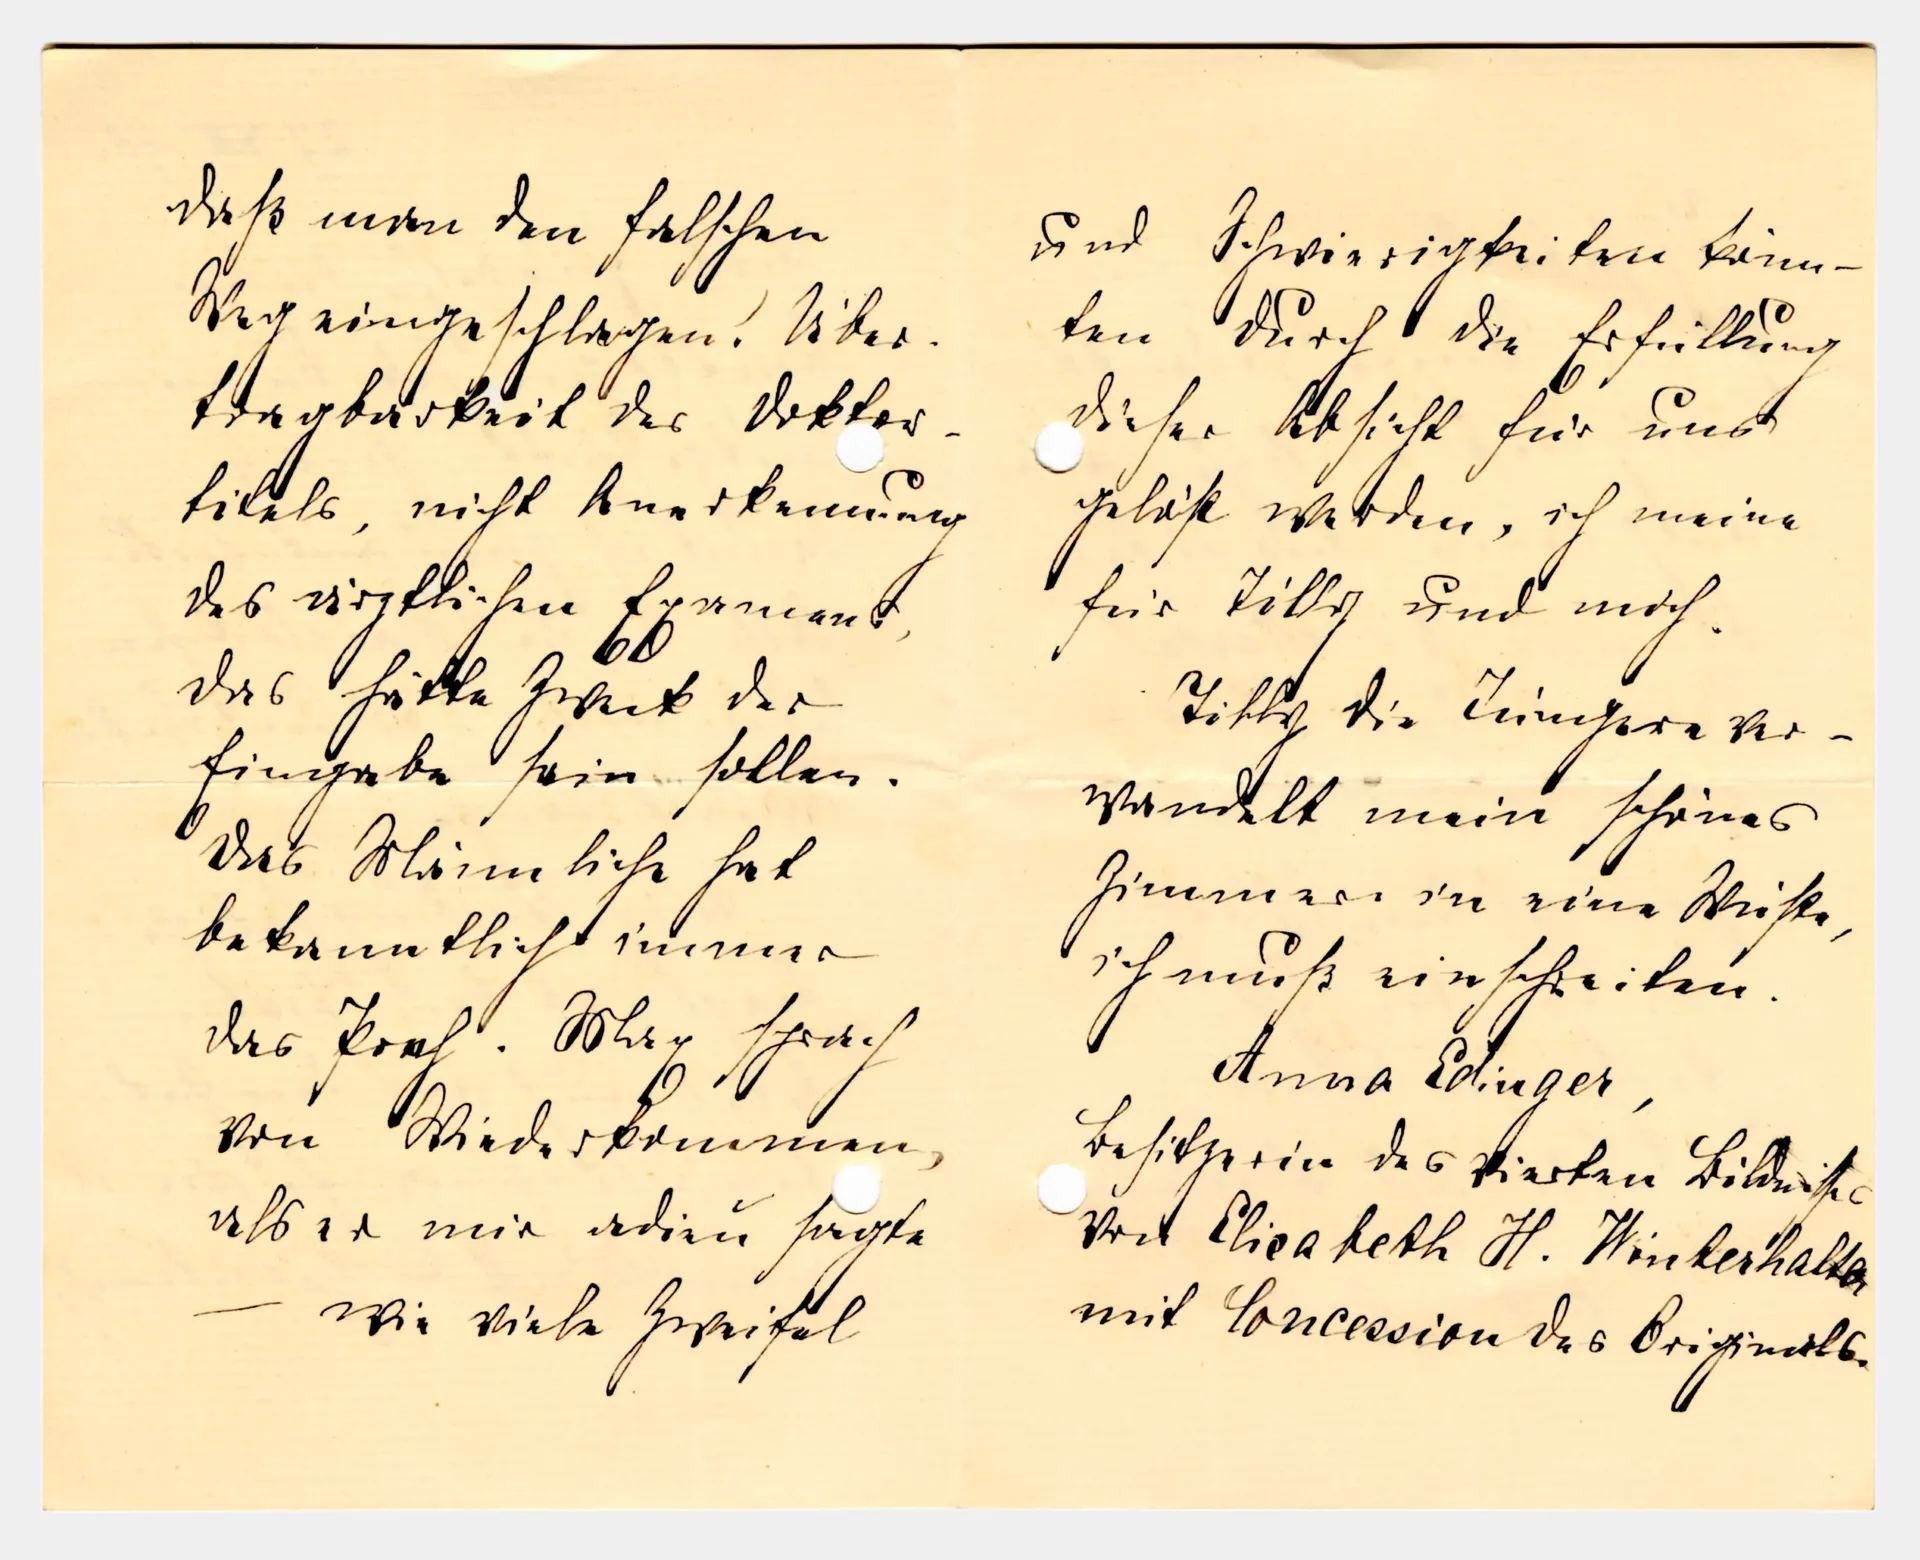 daß man den falschen
Weg eingeschlagen! Über-
tragbarkeit des Doktor-
titels, nicht Anerkennung
des ärztlichen Examens,
das hätte Zweck der
Eingabe sein sollen.
Das Männliche hat
bekanntlich immer
das Pech. Max sprach
von Wiederkommen,
als er mir adieu sagte
— wie viele Zweifel
und Schwierigkeiten könn-
ten durch die Erfüllung
dieser Absicht für uns
gelöst werden, ich meine
für Tilly und mich.
Tilly die Jüngere ver-
wandelt mein schönes
Zimmer in eine Wüste,
ich muß einschreiten.
Anna Edinger,
Besitzerin des vierten Bildnisses
von Elisabeth H. Winterhalter
mit Concession des Originals.